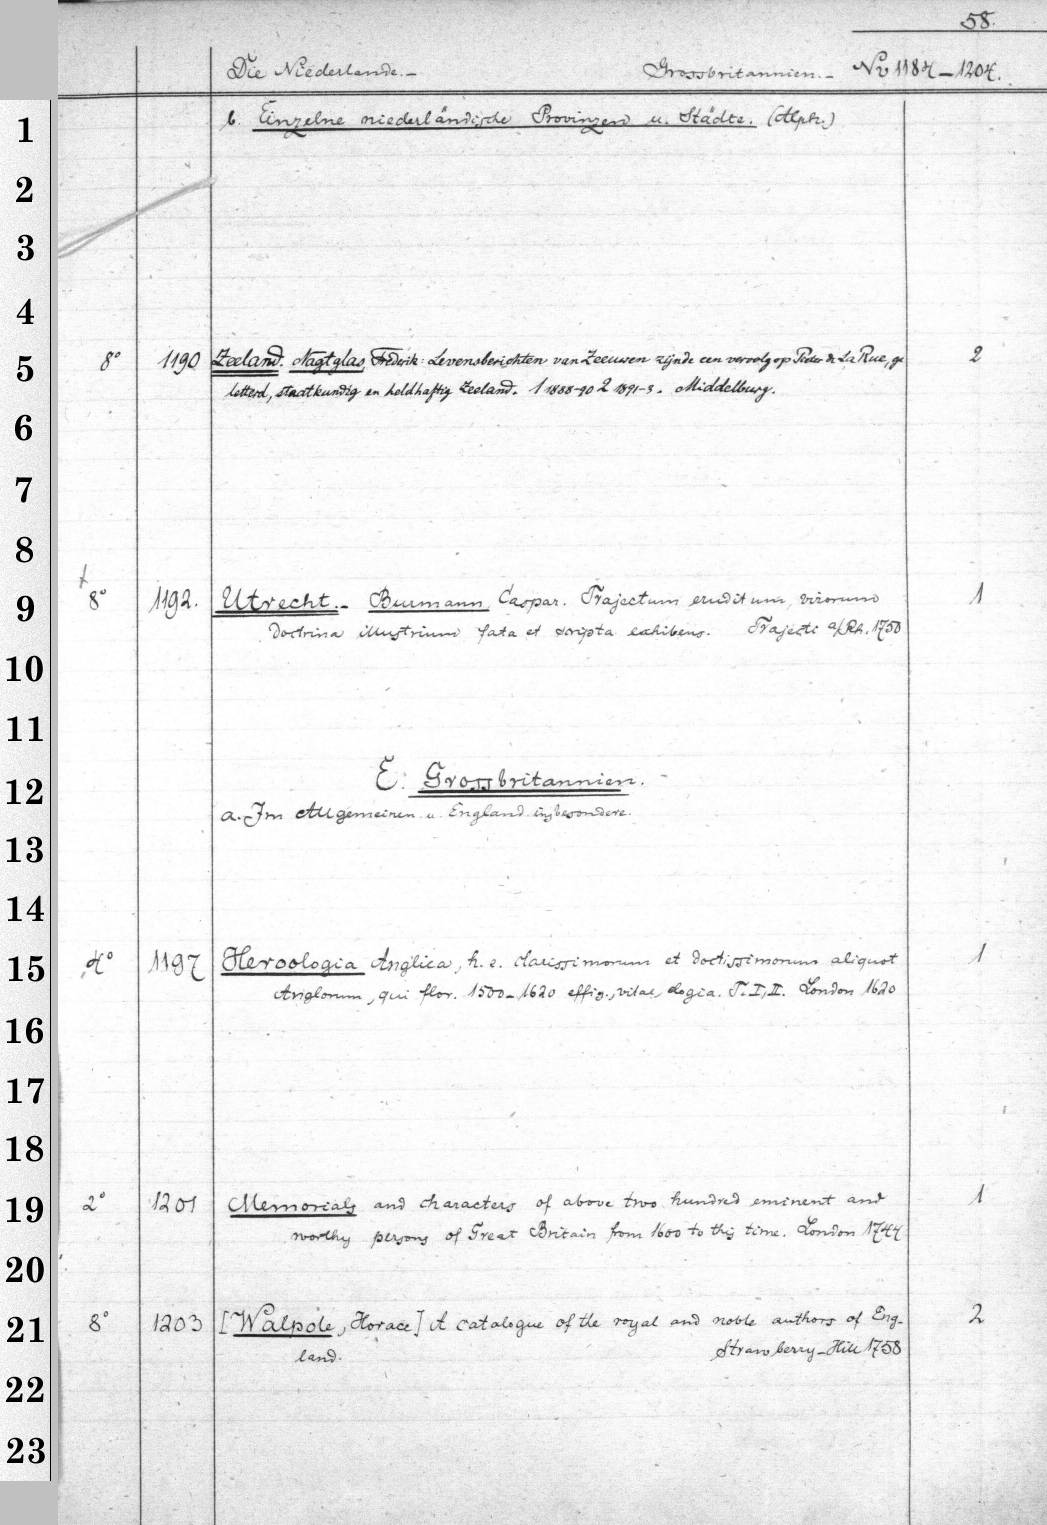 58.
Die Niederlande.- Grossbritannien.- No 1184-1204.
1 b. Einzelne niederländische Provinzen u. Städte. (Alph.)
2
3
4
5 8° 1190 Zeeland. Nagtglas, Frederik: Levensberichten van Zeeuwen zijnde een vervolg op Pieter de La Rue, ge
letterd, staatkundig en heldhaftig Zeeland. 1 1888-90 2 1891-3. Middelburg. 2
6
7
8
9 † 8° 1192. Utrecht.- Burmann, Caspar. Trajectum eruditum, virorum 1
doctrina illustrium fata et scripta exhibens. Trajecti a/Rh. 1750
10
11
12 E: Grossbritannien.
a. Im Allgemeinen u. England insbesondere.
13
14
15 4° 1197 Heroologia Anglica, h. e. clarissimorum et doctissimorum aliquot 1
Anglorum, qui flor. 1500-1620 effig., vitae, elogia. T. I, II. London 1620
16
17
18
19 2° 1201 Memorials and characters of above two hundred eminent and 1
worthy persons of Great Britain from 1600 to this time. London 1744
20
21 8° 1203 [Walpole, Horace] A catalogue of the royal and noble authors of Eng- 2
land. Strawberry-Hill 1758
22
23